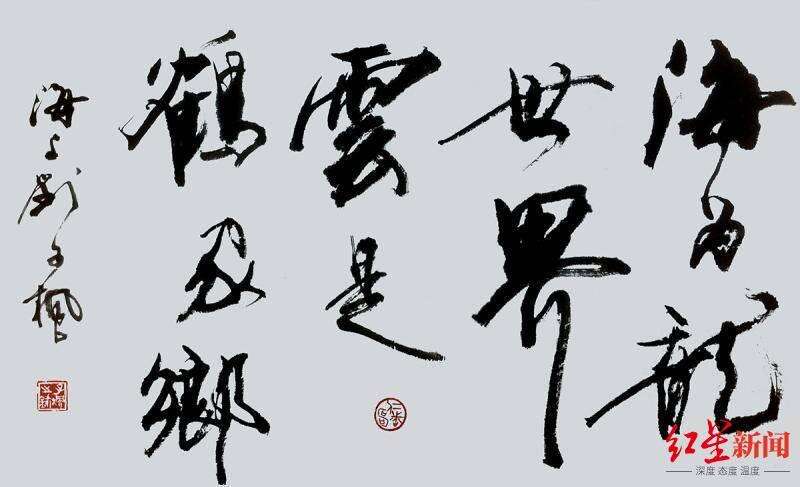 海為龍
世界
雲是
鶴家鄉
海上劉子楓
红星新闻
深度 态度 温度